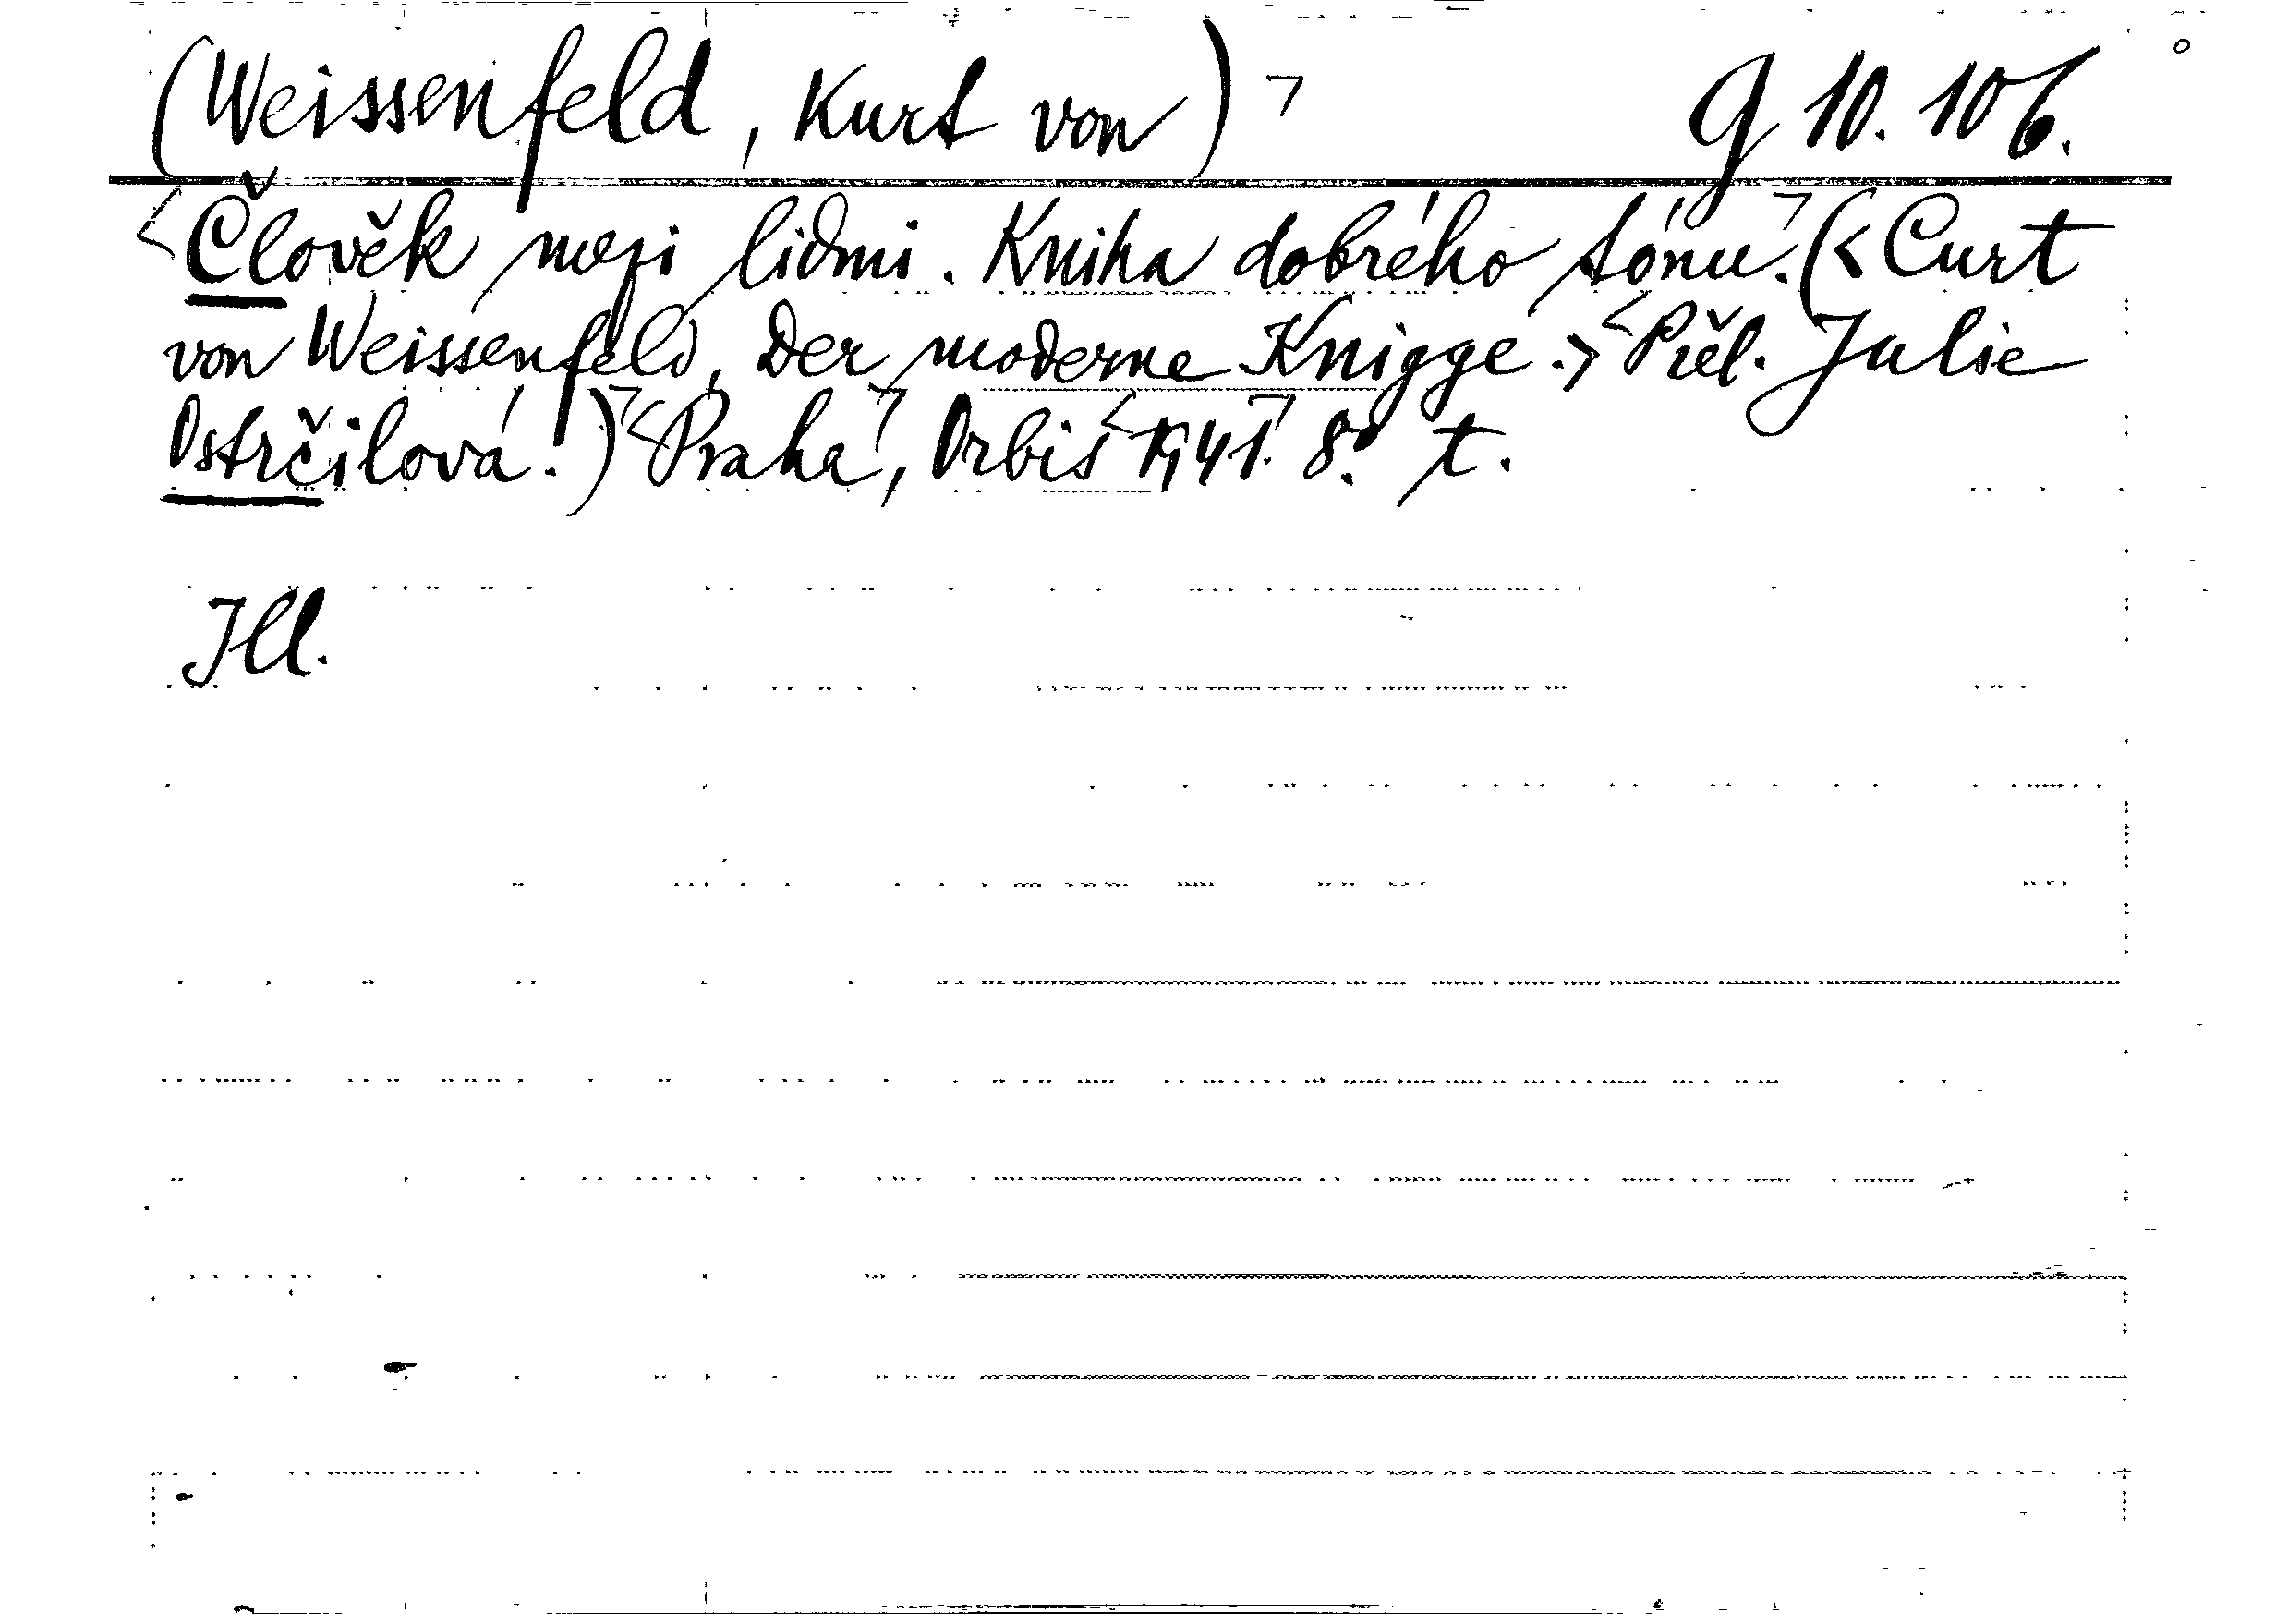 (Weissenfeld, Kurt von)¬ g 10.106.
<Člověk mezi lidmi. Kniha dobrého tónu¬.(<Curt
von Weissenfeld, Der moderne Knigge.> <Přel. Julie
Ostrčilová.)¬ <Praha¬, Orbis <1941¬. 8° t.
Ill.